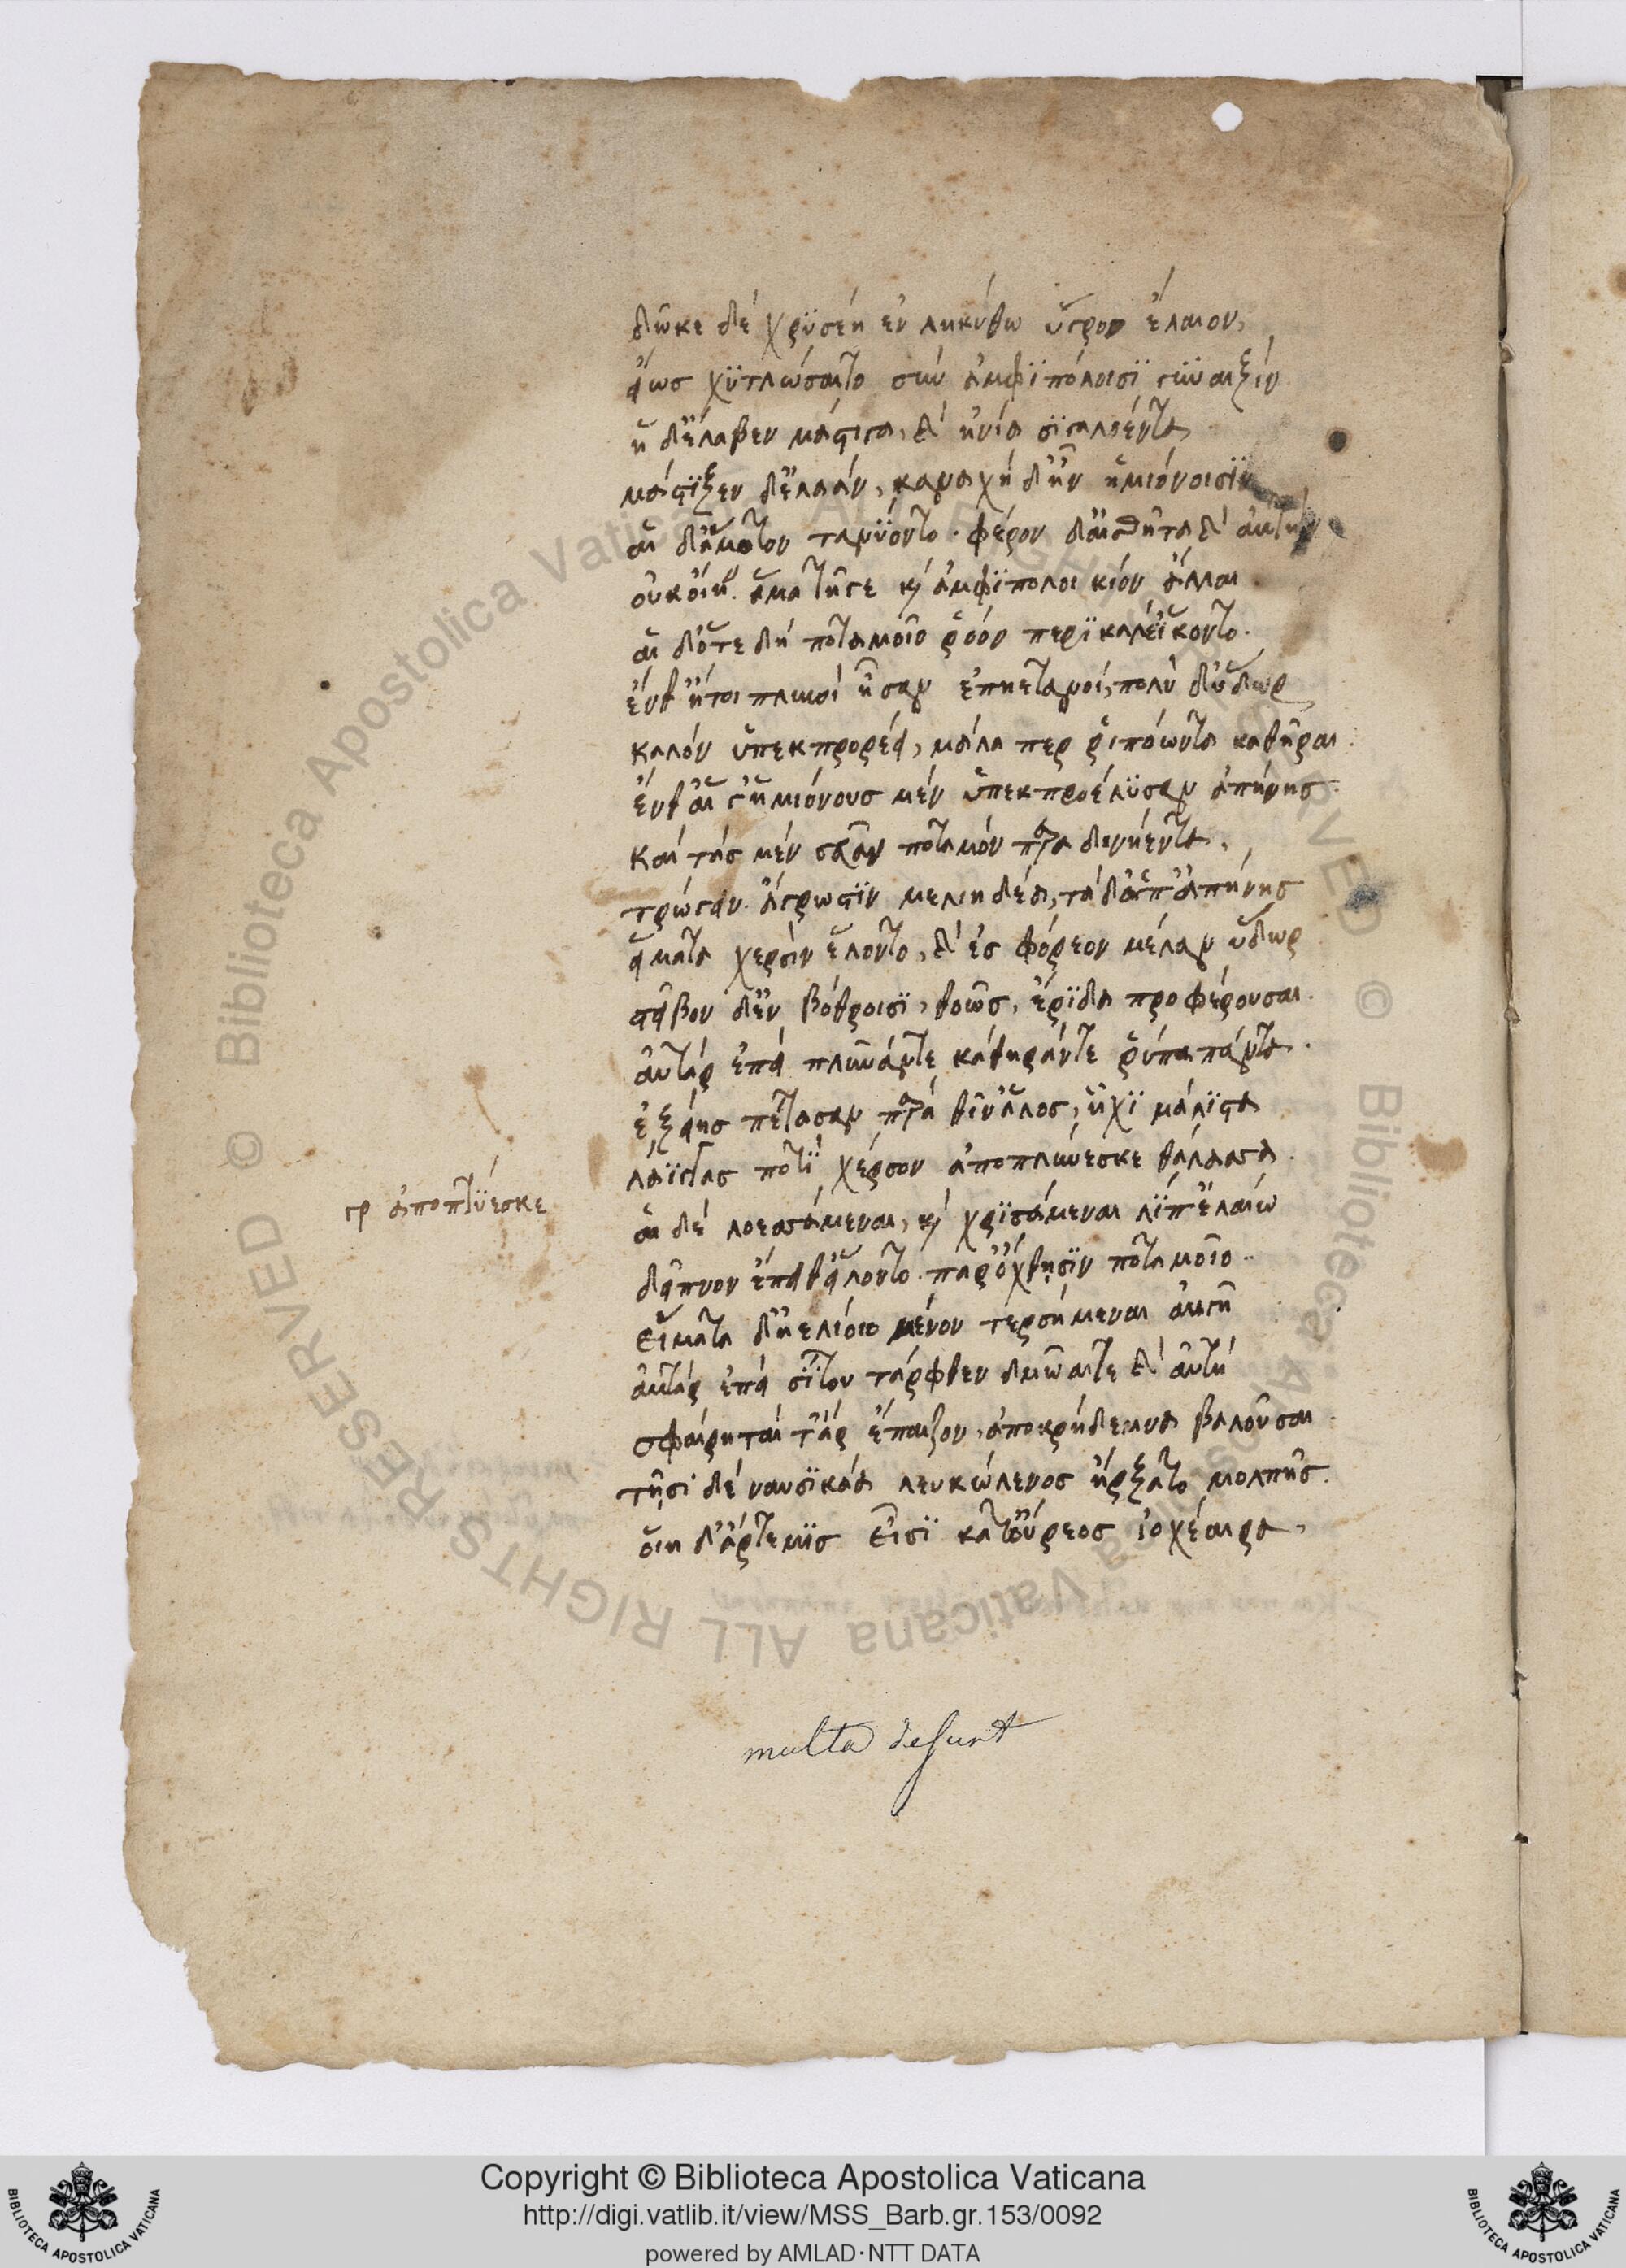 δῶκε δὲ χρϋσέη ἐν ληκύθω ὑγρὸν ἔλαιον,
εἵως χϋτλώσαιτο σὺν ἀμφϊπόλοισϊ γϋναιξίν
ἣ δ' ἔλαβεν μάστιγα, καὶ ἡνία σϊγαλόεντα
μάστϊξεν δ' ἐλάαν, καναχὴ δ' ἦν ἡμιόνοισϊν
αἳ δ' ἄμοτον τανϋοντο. φέρον δ' ἐσθῆτα καὶ αὐτὴν
οὐκ οἴην. ἅμα τῆγε καὶ ἀμφϊπολοι κίον ἄλλαι
αἳ δ' ὅτε δὴ ποταμοῖο ῥόον περϊκαλέ' ἵκοντο.
ἔνθ' ἤτοι πλυνοὶ ἦσαν ἐπηετανοί, πολὺ δ' ὕδωρ
καλὸν ὑπεκπρορέει, μάλα περ ῥιπόωντα καθῆραι.
ἔνθ' αἵ γ' ἡμιόνους μὲν ὑπεκπροέλϋσαν ἀπήνης.
καὶ τὰς μὲν σεῦαν ποταμὸν πάρα δινήεντα,
τρώγειν ἄγρωστϊν μελιηδέα, τὰ δ' ἀπ' ἀπήνης
εἵματα χερσὶν ἕλοντο, καὶ ἐσφόρεον μέλαν ὕδωρ
στεῖβον δ' ἐν βόθροισϊ, θοῶς, ἔρϊδα προφέρουσαι.
αὐτὰρ ἐπεὶ πλῦνάν τε κάθηράν τε ῥύπα πάντα.
ἑξείης πέτασαν παρὰ θῖν' ἁλὸς, ἧχϊ μάλϊστα
λάϊγγας ποτὶ χέρσον ἀποπλύνεσκε θάλασσα.
γρ ἀποπτϋεσκε
αἳ δὲ λοεσσάμεναι, καὶ χρϊσάμεναι λίπ' ἐλαίω
δεῖπνον ἔπειθ' εἵλοντο. παρ' ὄχθησϊν ποταμοῖο.
εἵματα δ' ἠελίοιο μένον τερσήμεναι αὐγῆ
αὐτὰρ ἐπεὶ σίτου τάρφθεν δμῶαί τε καὶ αὐτὴ
σφαίρη ταὶ τ' ἄρ ἔπαιζον, ἀπο κρήδεμνα βαλοῦσαι
τῆσι δὲ ναυσϊκάα λευκώλενος ἤρξατο μολπῆς.
οἵη δ' ἄρτεμϊς εἶσϊ κατ' οὔρεος ἰοχέαιρα,
multa desunt
Copyright © Biblioteca Apostolica Vaticana
http://digi.vatlib.it/view/MSS_Barb.gr.153/0092
powered by AMLAD·NTT DATA